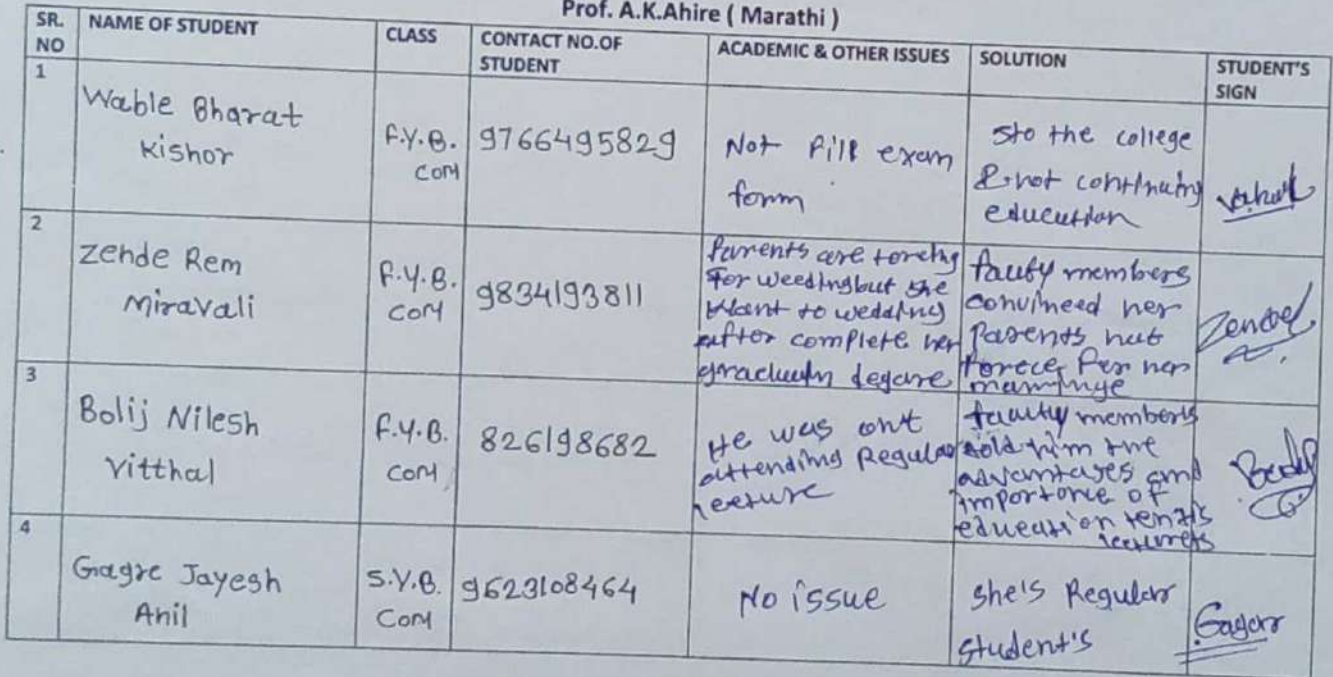 Prof. A.K.Ahire ( Marathi )
SR. NO
NAME OF STUDENT
CLASS
CONTACT NO.OF STUDENT
ACADEMIC & OTHER ISSUES
SOLUTION
STUDENT'S SIGN
1
Wable Bharat
Kishor
F.Y.B.
COM
9766495829
Not Fill exam
form
Sto the college
& not continuing
education
2
Zende Rem
Miravali
F.Y.B.
COM
9834193811
Parents are
for weeding but she
Want to wedding
after complete her
degare
members
her
Parents
for her
3
Bolij Nilesh
Vitthal
F.Y.B.
COM
826198682
He was
attending Regular
lecture
members
him the
advantages and
importance of
education
4
Gagre Jayesh
Anil
S.Y.B.
COM
9623108464
No issue
She's Regular
Student's